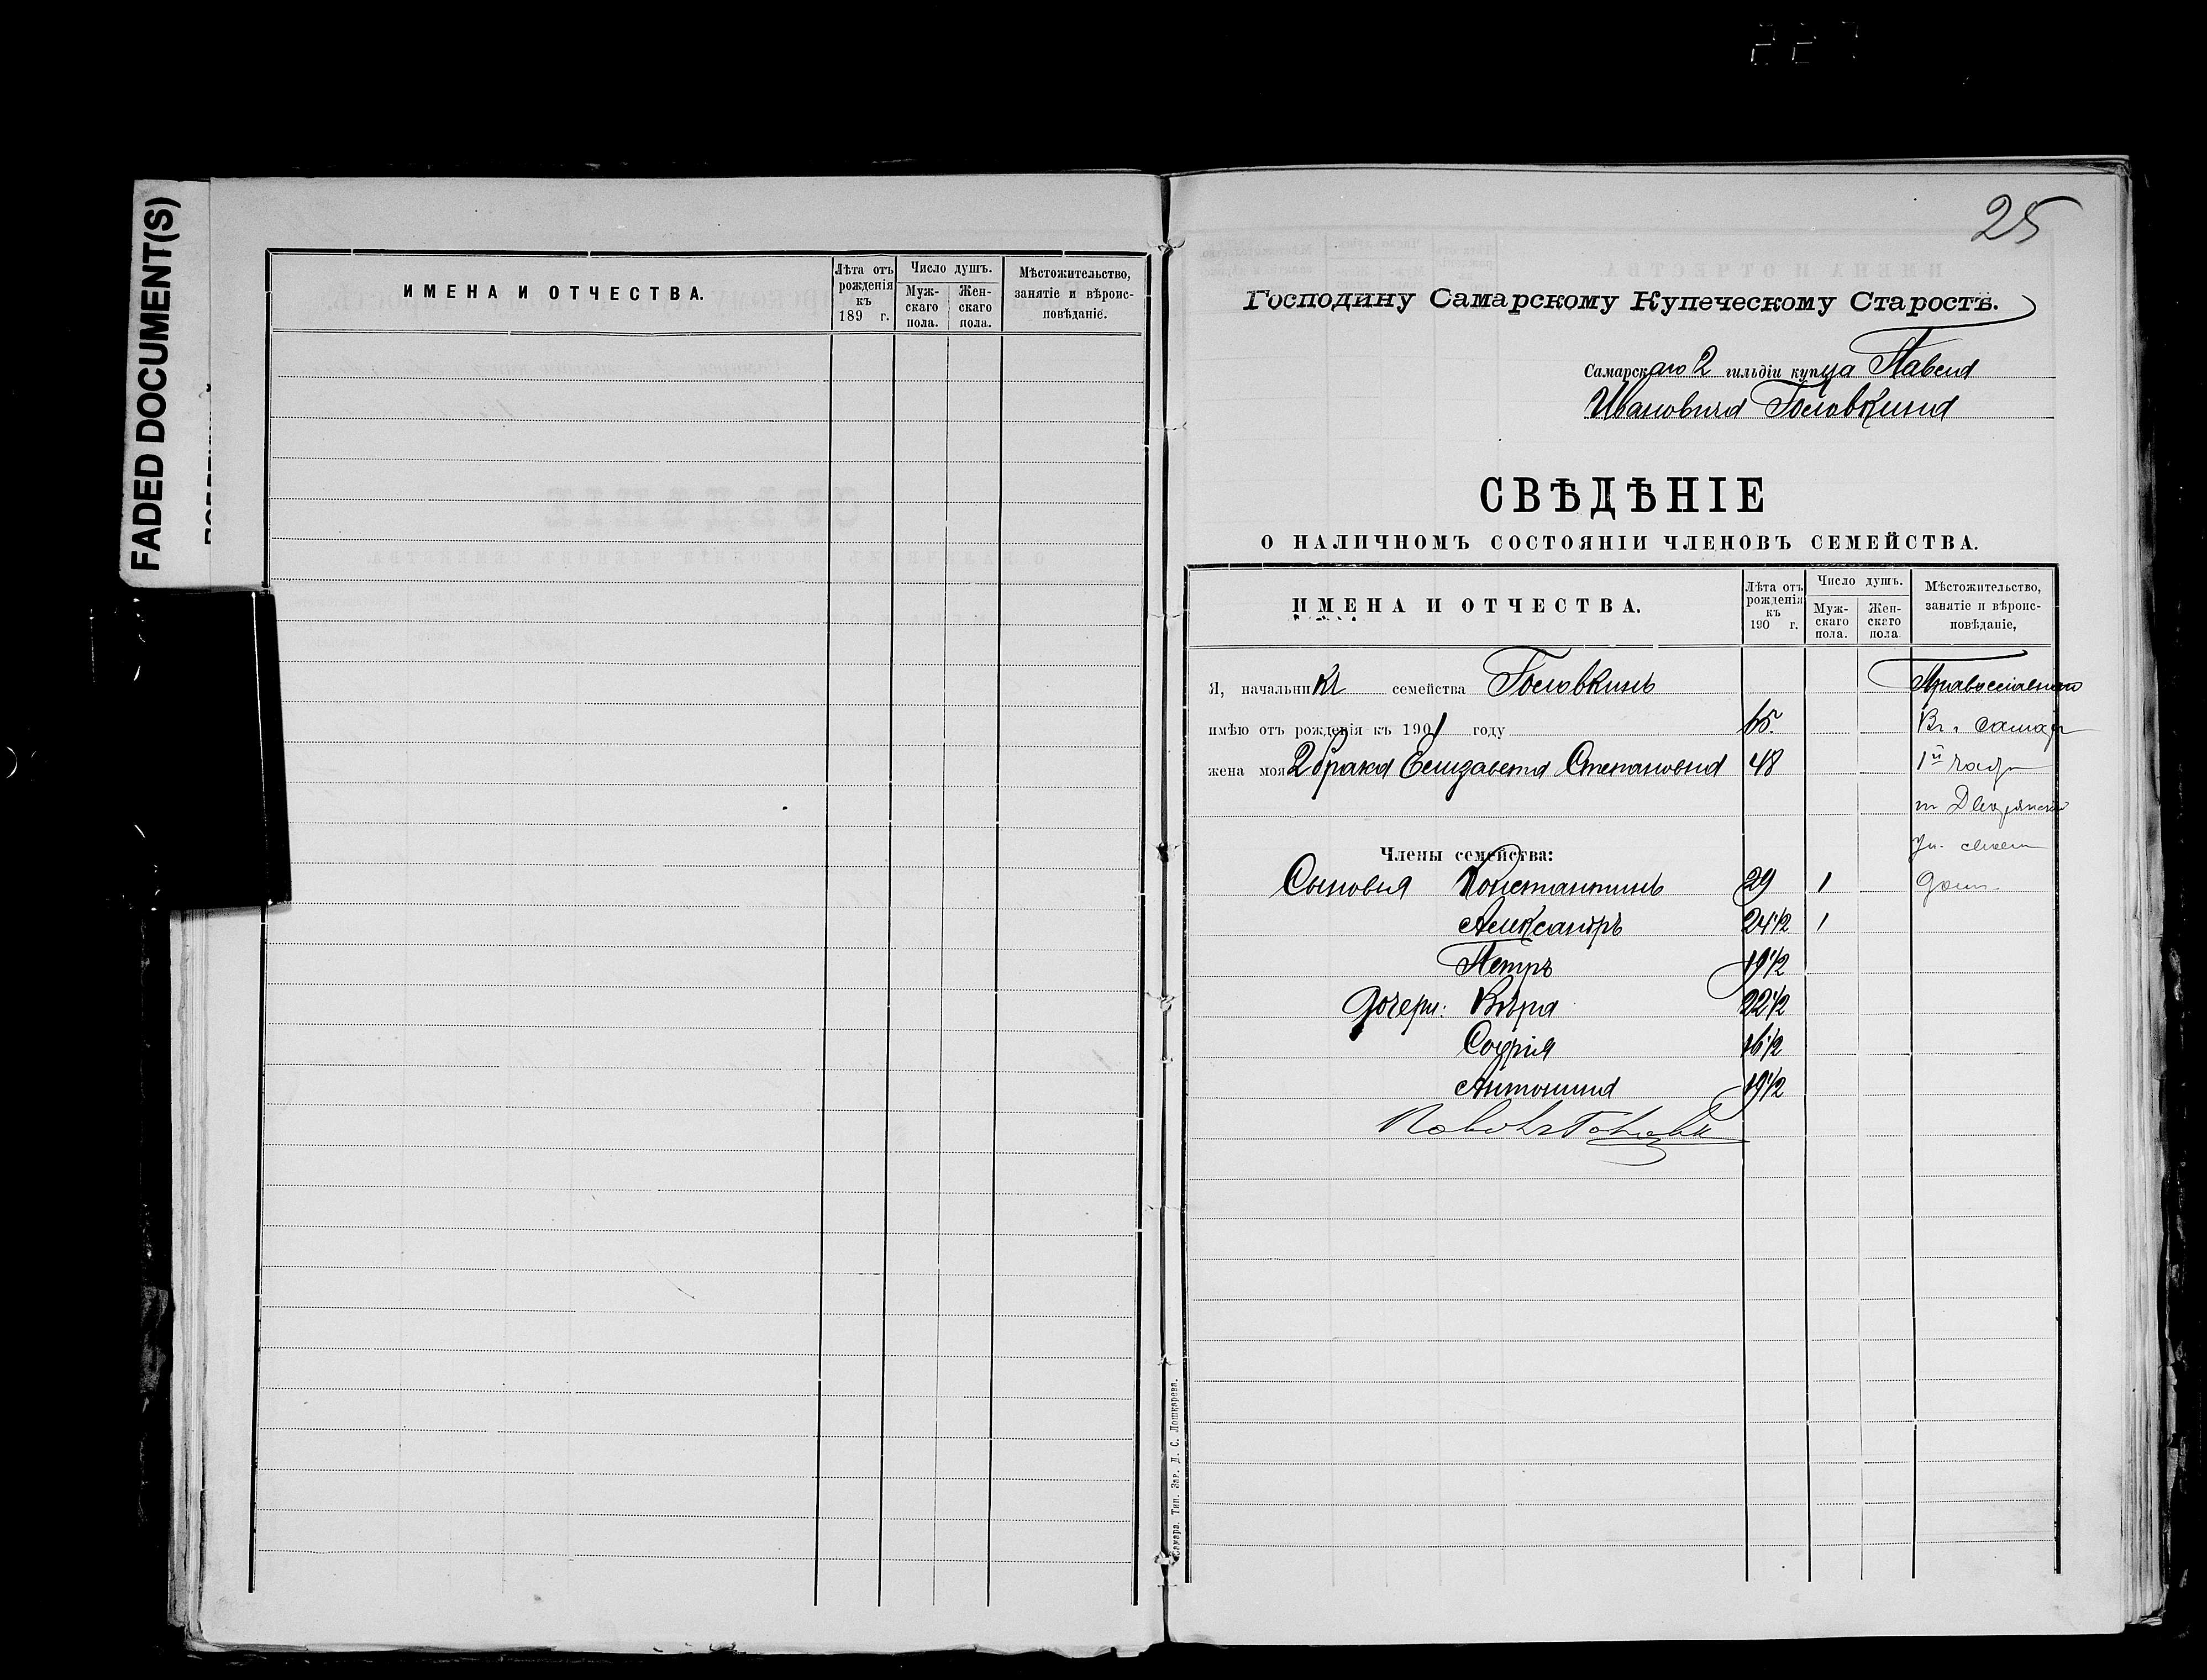 FADED DOCUMENT(S)
ИМЕНА И ОТЧЕСТВА.
Лѣта отъ рожденія къ 189 г.
Число душъ.
Мужскаго пола.
Женскаго пола.
Мѣстожительство, занятіе и вѣроисповѣданіе.
25
Господину Самарскому Купеческому Старостѣ.
Самарскаго 2 гильдіи купца Павла
Ивановича Головкина
СВѢДѢНІЕ
О НАЛИЧНОМЪ СОСТОЯНІИ ЧЛЕНОВЪ СЕМЕЙСТВА.
ИМЕНА И ОТЧЕСТВА.
Лѣта отъ рожденія къ 190 г.
Число душъ.
Мужскаго пола.
Женскаго пола
Мѣстожительство, занятіе и вѣроисповѣданіе,
Я, начальникъ семейства Головкинъ Православнаго
имѣю отъ рожденія къ 1901 году 65. Въ г. Самарѣ
жена моя 2 брака Елизавета Степановна 48 1й части
Дворянской
ул. своем
Члены семейства:
Сыновья Константинъ 29 1 доме
Александръ 24 1/2 1
Петръ 19 1/2
Дочери: Вѣра 22 1/2
Софія 16 1/2
Антонина 19 1/2
Павелъ Головкинъ
Самара. Тип. Зар. Д. С. Лошкарева.